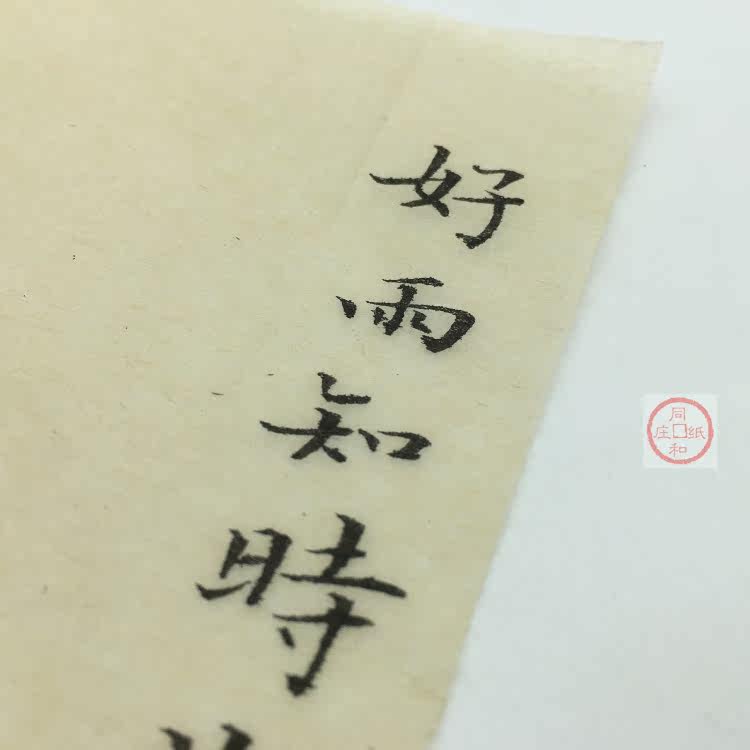 好雨知時
同和纸庄